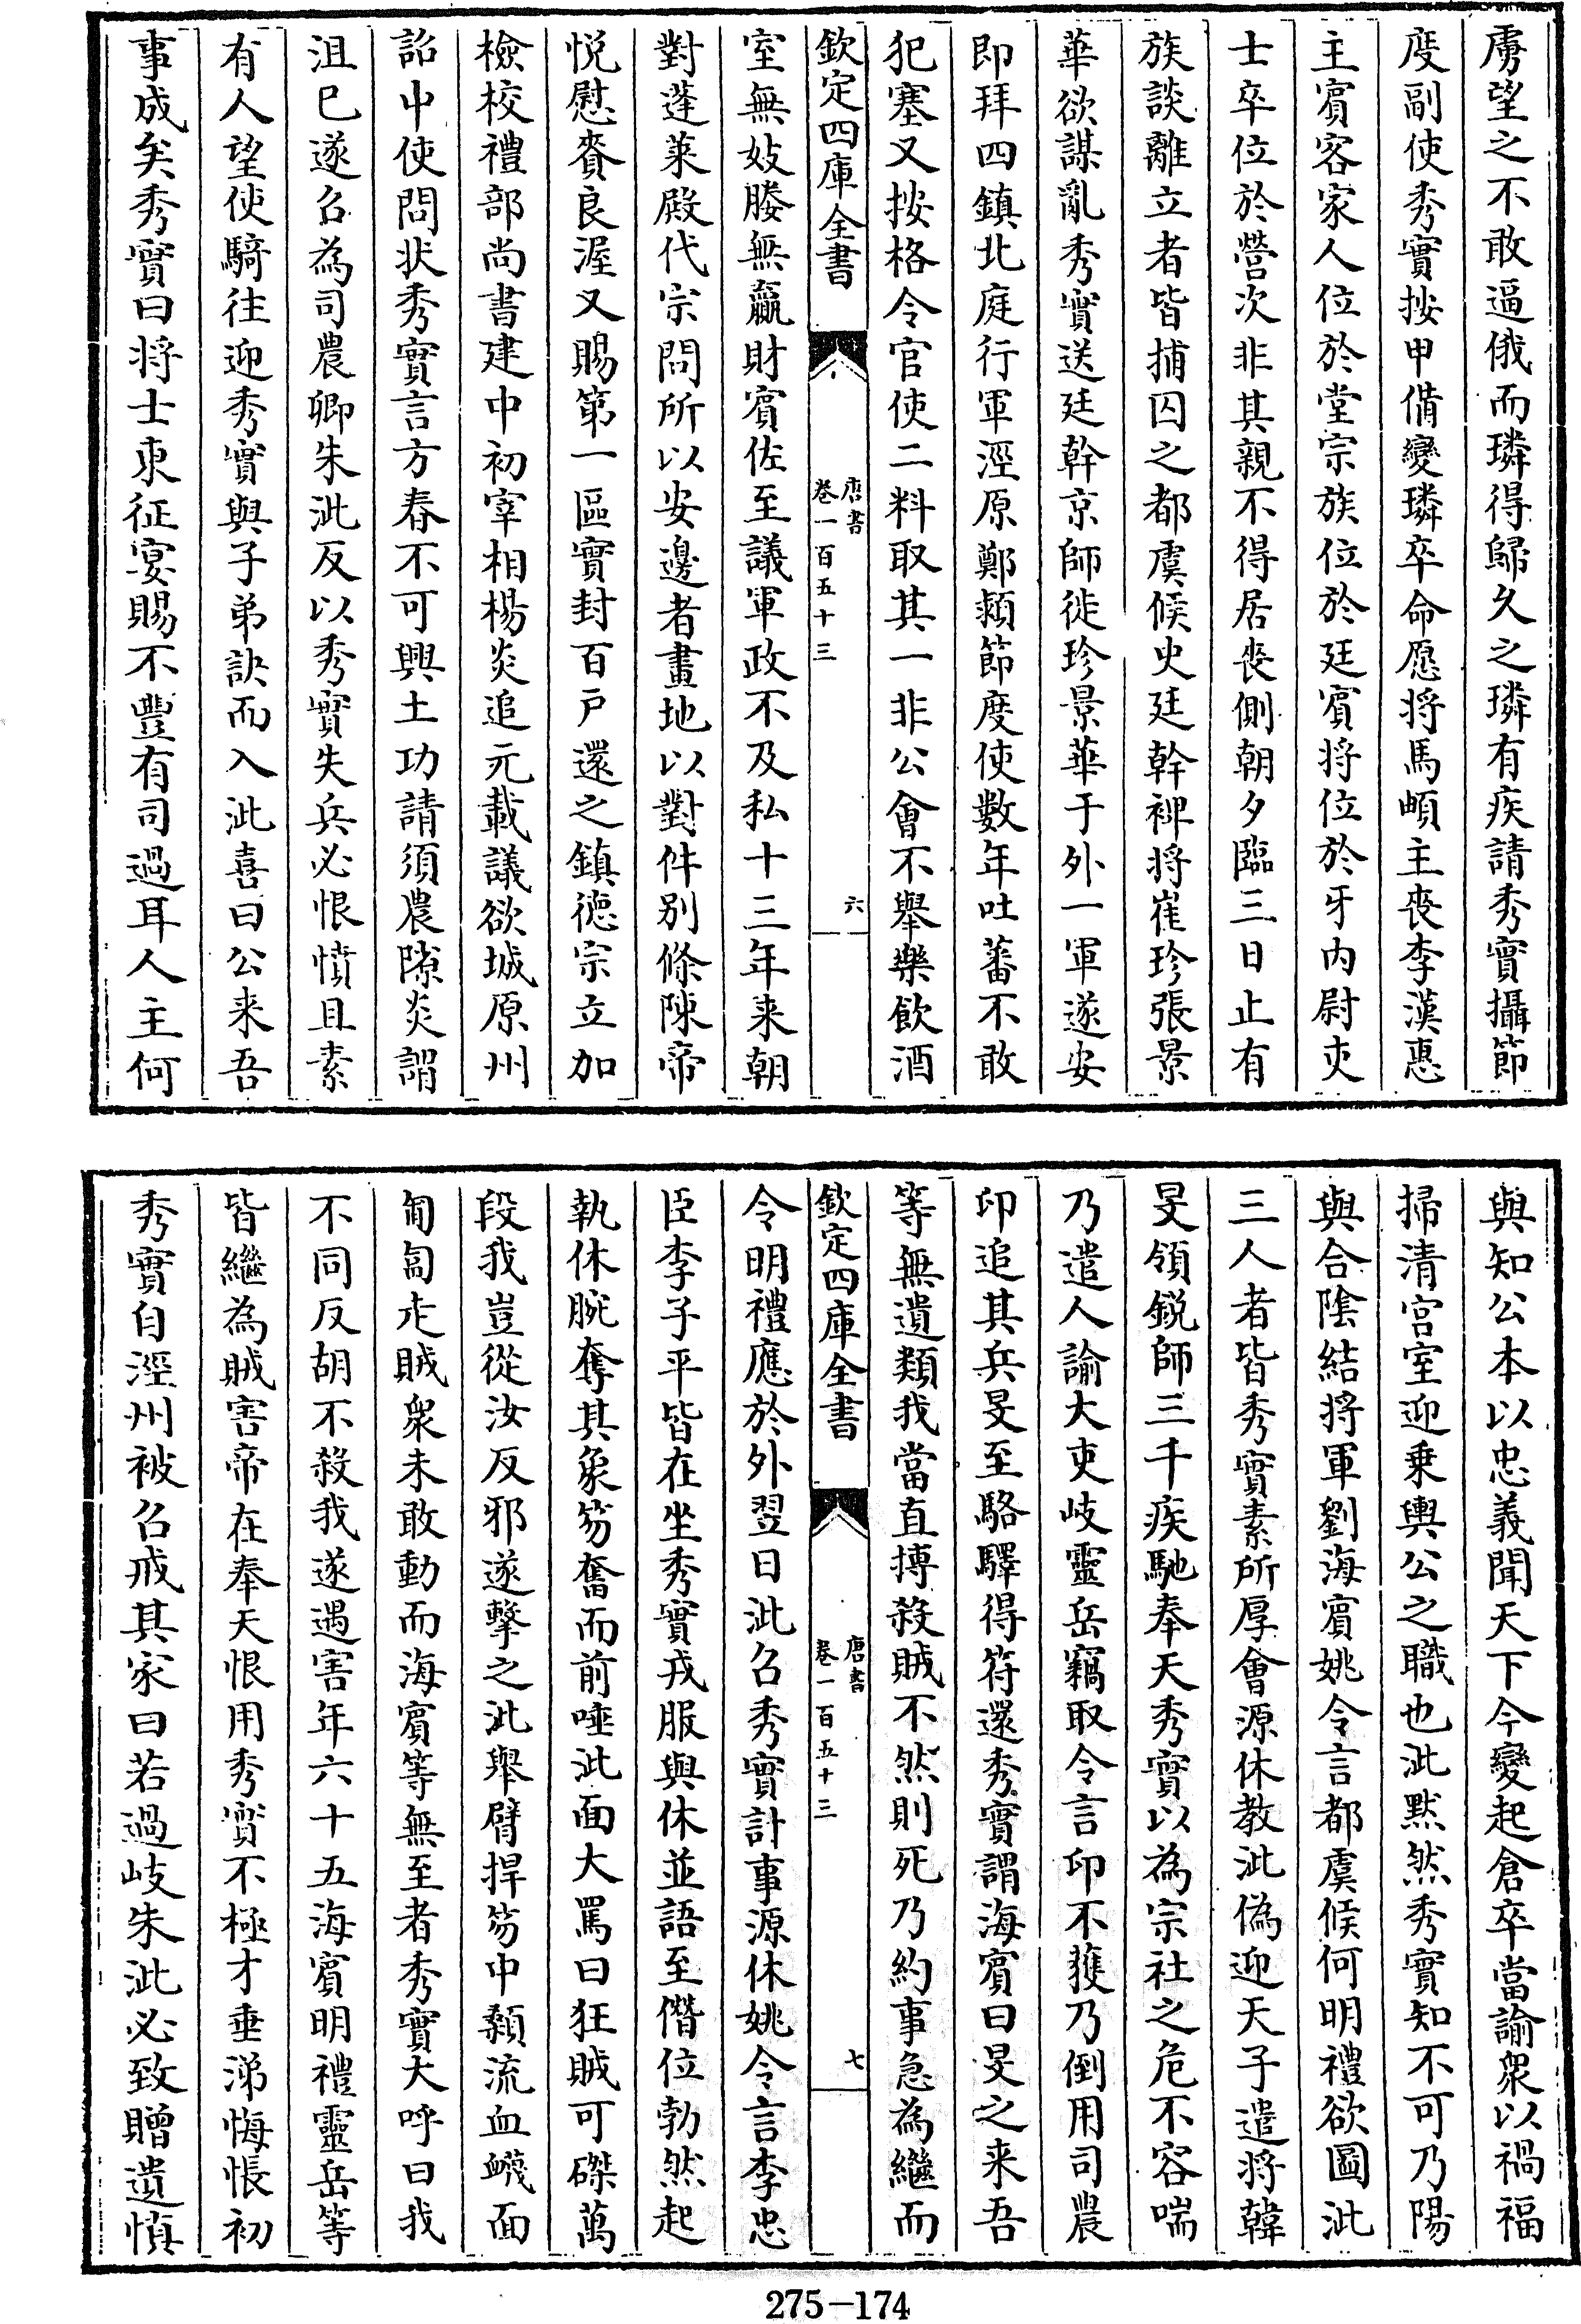 虜望之不敢逼俄而璘得歸久之璘有疾請秀實攝節
度副使秀實按甲備變璘卒命愿將馬頔主喪李漢惠
主賓客家人位於堂宗族位於廷賓將位於牙內尉吏
士卒位於營次非其親不得居喪側朝夕臨三日止有
族談離立者皆捕囚之都虞候史廷幹裨將崔珍張景
華欲謀亂秀實送廷幹京師徙珍景華于外一軍遂安
即拜四鎮北庭行軍涇原鄭潁節度使數年吐蕃不敢
犯塞又按格令官使二料取其一非公會不舉樂飲酒
欽定四庫全書
唐書
卷一百五十三
六
室無妓媵無贏財賓佐至議軍政不及私十三年来朝
對蓬萊殿代宗問所以安邊者畫地以對件別條陳帝
悅慰賚良渥又賜第一區實封百戶還之鎮德宗立加
檢校禮部尚書建中初宰相楊炎追元載議欲城原州
詔中使問狀秀實言方春不可興土功請須農隙炎謂
沮巳遂召為司農卿朱泚反以秀實失兵必恨憤且素
有人望使騎往迎秀實與子弟訣而入泚喜曰公来吾
事成矣秀實曰將士東征宴賜不豐有司過耳人主何
與知公本以忠義聞天下今變起倉卒當諭衆以禍福
掃清宫室迎乗輿公之職也泚黙然秀實知不可乃陽
與合隂結將軍劉海賓姚令言都虞候何明禮欲圖泚
三人者皆秀實素所厚會源休教泚偽迎天子遣將韓
旻領銳師三千疾馳奉天秀實以為宗社之危不容喘
乃遣人諭大吏岐靈岳竊取令言印不獲乃倒用司農
印追其兵旻至駱驛得符還秀實謂海賓曰旻之来吾
等無遺類我當直搏殺賊不然則死乃約事急為繼而
欽定四庫全書
唐書
卷一百五十三
七
令明禮應於外翌日泚召秀實計事源休姚令言李忠
臣李子平皆在坐秀實戎服與休並語至僭位勃然起
執休腕奪其象笏奮而前唾泚面大罵曰狂賊可磔萬
段我豈從汝反邪遂擊之泚舉臂捍笏中顙流血衊面
匍匐走賊衆未敢動而海賓等無至者秀實大呼曰我
不同反胡不殺我遂遇害年六十五海賓明禮靈岳等
皆繼為賊害帝在奉天恨用秀實不極才垂涕悔悵初
秀實自涇州被召戒其家曰若過岐朱泚必致贈遺慎
275-174